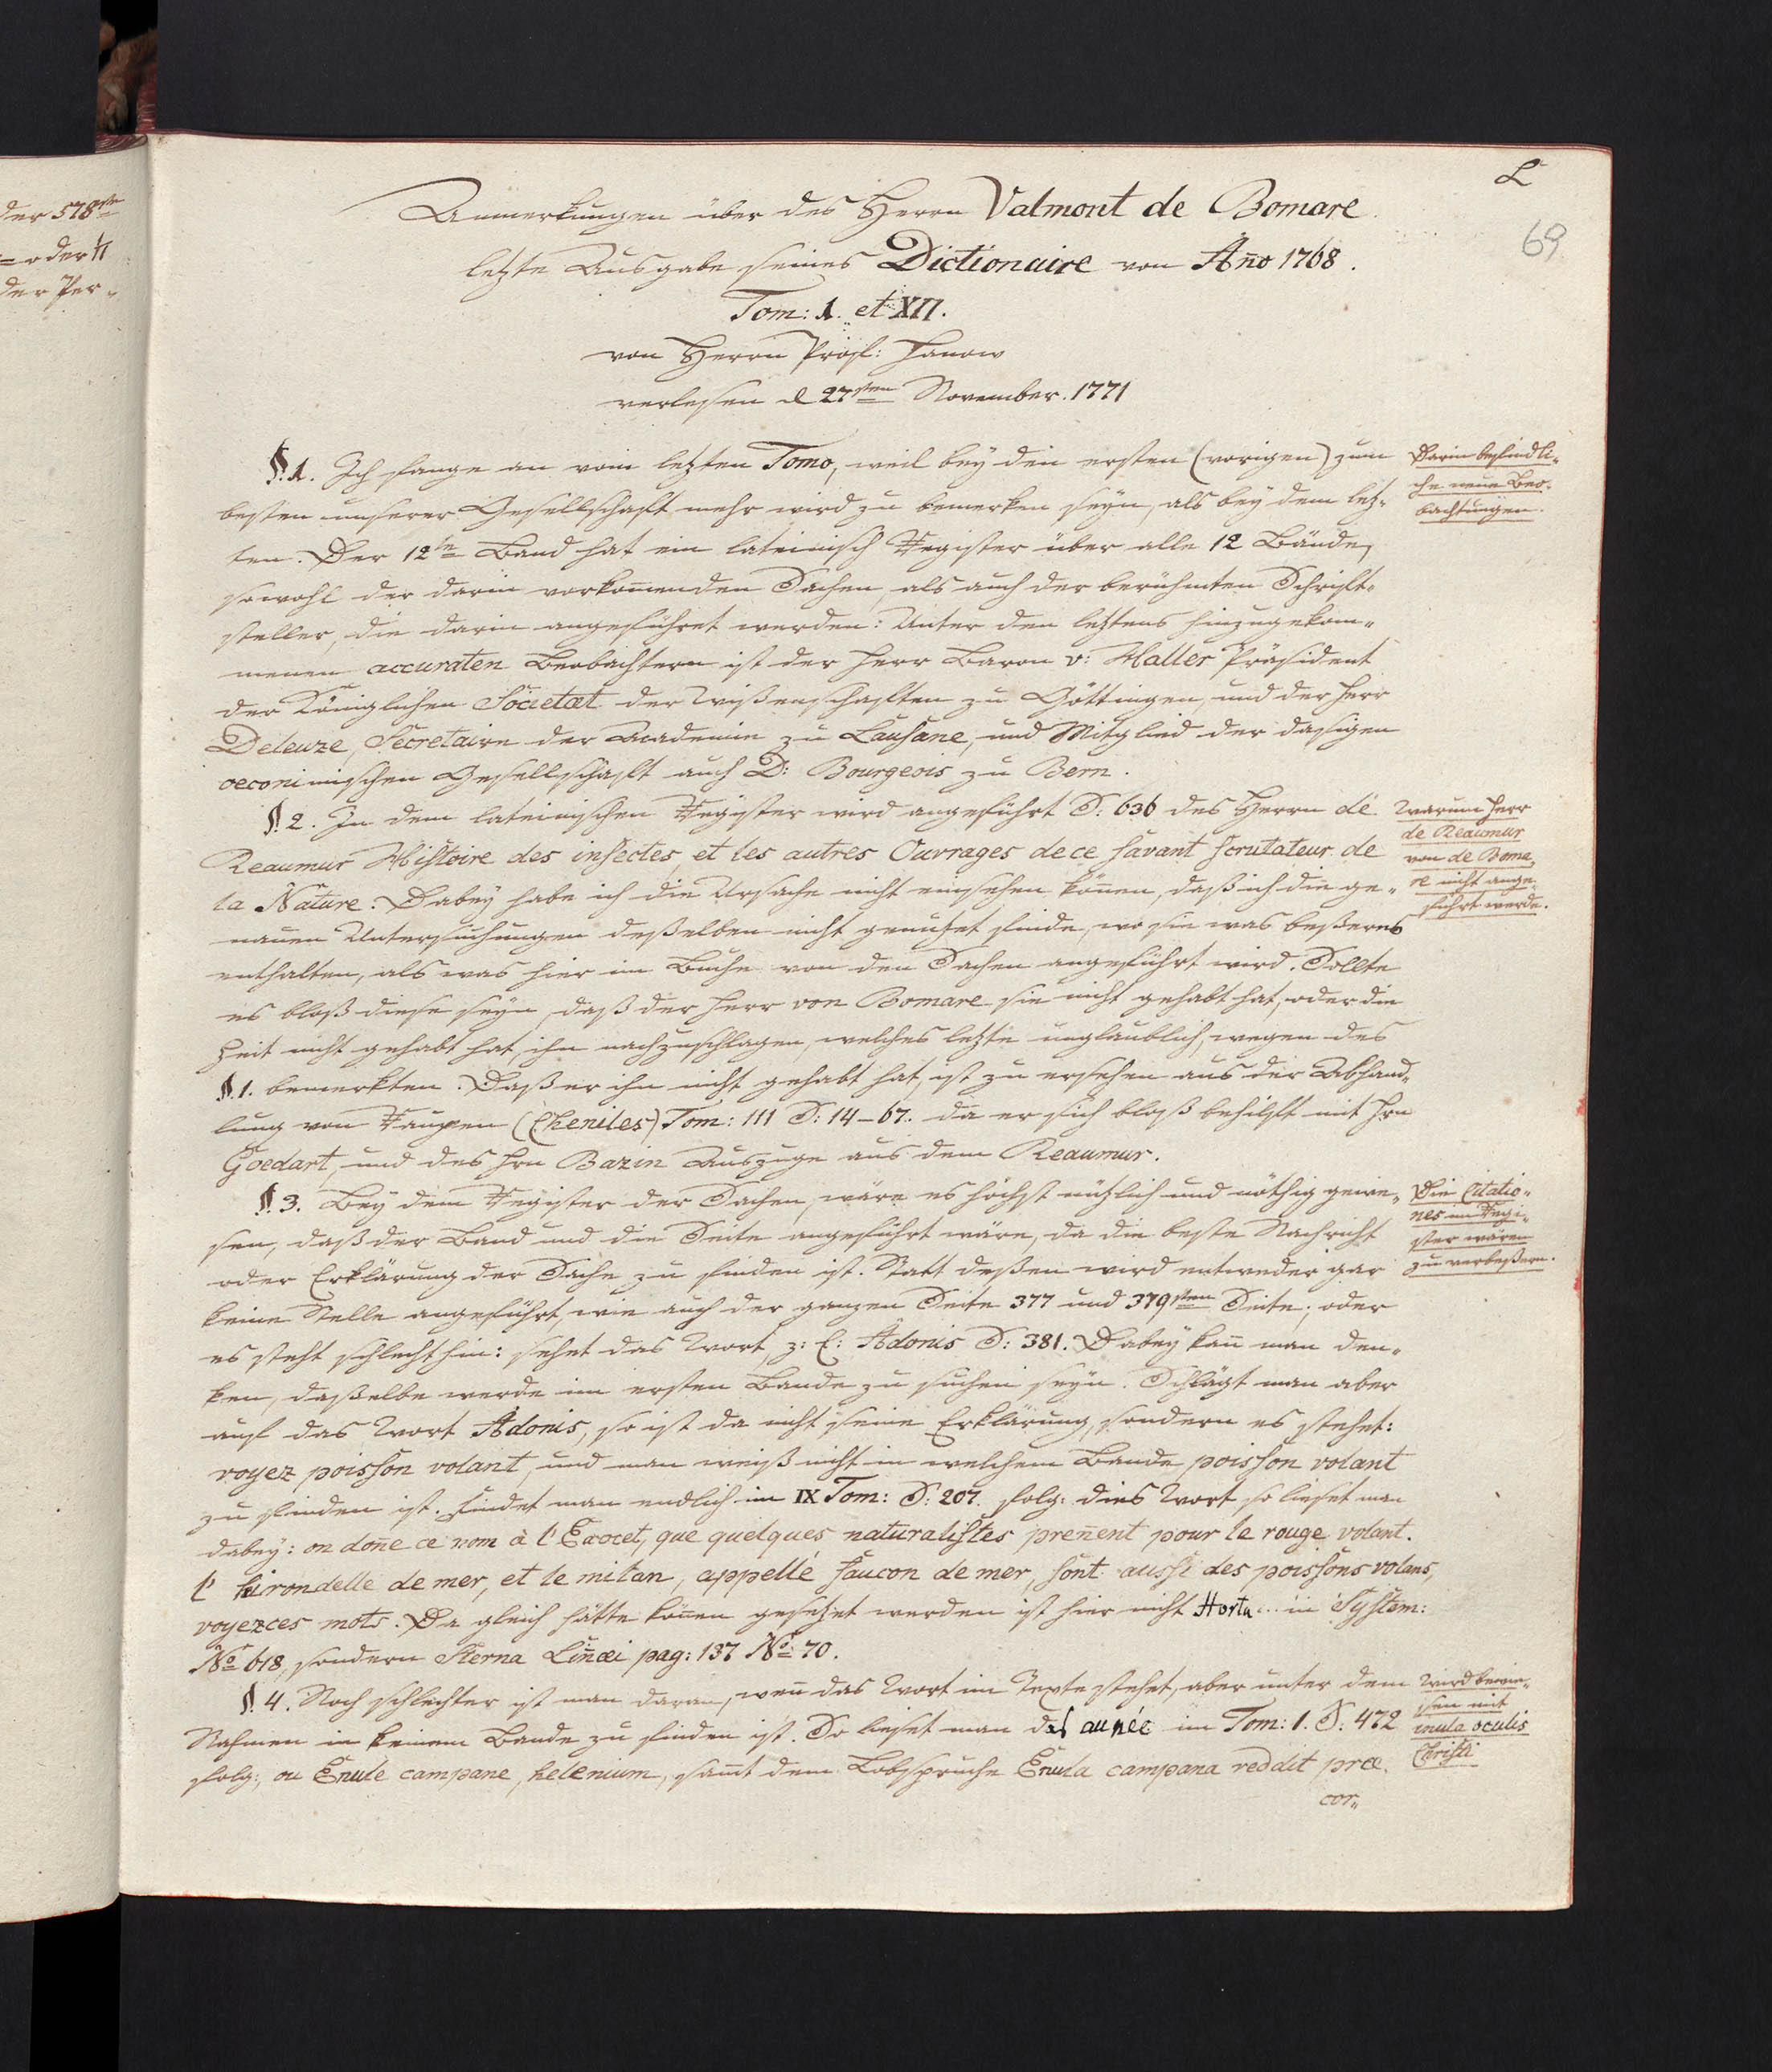 der 578ste
= oder
der Per-
L
69
Anmerkungen über des Herrn Valmont de Bomare
letzte Ausgabe seines Dictionaire von Año 1768.
Tom: 1. et XII.
von Herrn Prof: Hanow
verlesen d 27sten November. 1771
§. 1. Ich fange an vom letzten Tomo, weil bey den ersten (vorigen) zum
besten unserer Gesellschaft mehr wird zu bemerken seyn, als bey dem letz-
ten. Der 12te Band hat ein lateinisch Register über alle 12 Bände,
sowohl der darin vorkom̄enden Sachen, als auch der berühmten Schrift-
steller, die darin angeführet werden: Unter den letztens hinzugekom-
menen accuraten Beobachtern ist der Herr Baron v: Haller Präsident
der Königlichen Societæt der Wißenschaften zu Göttingen, und der Herr
Deleuze, Secretaire der Academie zu Lausane, und Mitglied der dasigen
oeconimischen Gesellschaft auch D: Bourgeois zu Bern.
Darin befindli-
che neue Beo-
bachtungen.
§. 2. In dem lateinischen Register wird angeführt S: 636 des Herrn de
Reaumur Histoire des insectes, et les autres Ouvrages de ce savant scrutateur de
la Nature. Dabey habe ich die Ursache nicht einsehen kön̄en, daß ich die ge-
nauen Untersuchungen deßelben nicht genutzet finde, wo sie was beßeres
enthalten, als was hier im Buche von den Sachen angeführt wird. Sollte
es bloß diese seyn, daß der Herr von Bomare sie nicht gehabt hat, oder die
Zeit nicht gehabt hat, ihn nachzuschlagen, welches letzte unglaublich, wegen des
§. 1. bemerkten. Daß er ihn nicht gehabt hat, ist zu ersehen aus der Abhand-
lung von Raupen (Cheniles) Tom: III S: 14-67. da er sich bloß behilft mit Hrn
Goedart, und des Hrn Bazin Auszuge aus dem Reaumur.
Warum Herr
de Reaumur
von de Boma-
re nicht ange-
führt werde.
§. 3. Bey dem Register der Sachen, wäre es höchst nützlich und nöthig gewe-
sen, daß der Band und die Seite angeführt wäre, da die beste Nachricht
oder Erklärung der Sache zu finden ist. Statt deßen wird entweder gar
keine Stelle angeführt, wie auch der ganzen Seite 377 und 379sten Seite; oder
es steht schlecht hin: sehet das Wort, z: E: Adonis S: 381. Dabey kan̄ man den-
ken, daßelbe werde im ersten Bande zu suchen seyn. Schlägt man aber
auf das Wort Adonis, so ist da nicht seine Erklärung, sondern es stehet:
voyez poisson volant, und man weiß nicht in welchem Bande poisson volant
zu finden ist. Findet man endlich im IX Tom: S: 207. folg: dies Wort so lieset man
dabey: on don̄e ce nom à l' Exocet, que quelques naturalistes pren̄ent pour le rouge volant.
l' hirondelle de mer, et le milan, appellé faucon de mer, sont aussi des poissons volans,
voyez ces mots. Da gleich hätte kön̄en gesetzet werden ist hier nicht Hortu... in System:
No 618, sondern Sterna Lin̄æi pag: 137 No 70.
Die Citatio-
nes im Regi-
ster wären
zu verbeßern.
§ 4. Noch schlechter ist man daran, wen̄ das Wort im Texte stehet, aber unter dem
Nahmen in keinem Bande zu finden ist. So lieset man das aunée im Tom: 1. S: 472
folg:, ou Enule campane, helenium, sam̄t dem Lobspruche Enula campana reddit præ-
cor-
Wird bewie-
sen mit
inula oculis
Christi